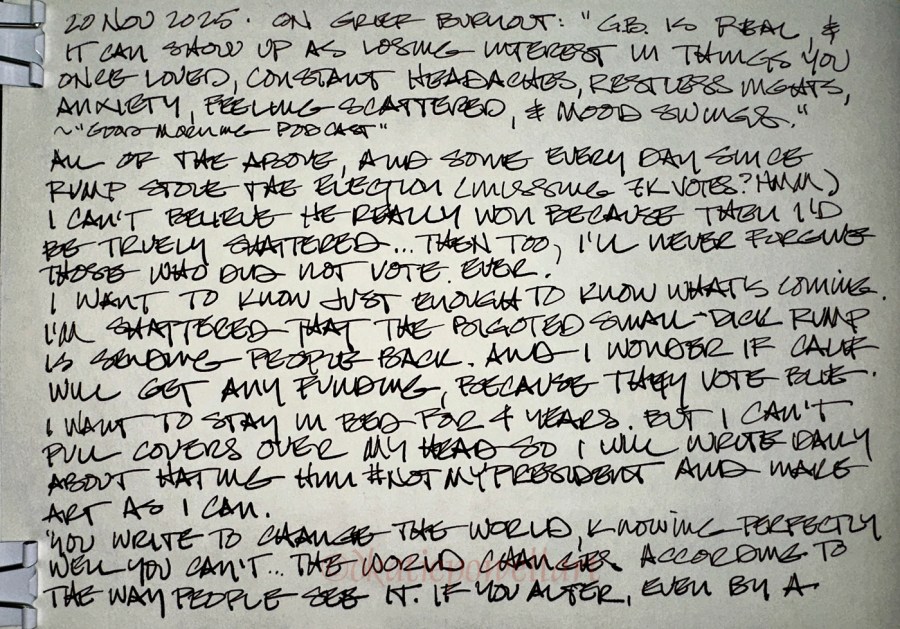 20 NOV 2025. ON GRIEF BURNOUT: "G.B. IS REAL, &
IT CAN SHOW UP AS LOSING INTEREST IN THINGS YOU
ONCE LOVED, CONSTANT HEADACHES, RESTLESS NIGHTS,
ANXIETY, FEELING SCATTERED, & MOOD SWINGS."
~"GOOD MORNING PODCAST"
ALL OF THE ABOVE, AND SOME EVERY DAY SINCE
RUMP STOLE THE ELECTION (MISSING 7K VOTES? HMM)
I CAN'T BELIEVE HE REALLY WON BECAUSE THEN I'D
BE TRUELY SHATTERED...THEN TOO, I'LL NEVER FORGIVE
THOSE WHO DID NOT VOTE. EVER.
I WANT TO KNOW JUST ENOUGH TO KNOW WHAT'S COMING.
I'M SHATTERED THAT THE BIGOTED SMALL-DICK RUMP
IS SENDING PEOPLE BACK. AND I WONDER IF CALIF
WILL GET ANY FUNDING, BECAUSE THEY VOTE BLUE.
I WANT TO STAY IN BED FOR 4 YEARS. BUT I CAN'T
PULL COVERS OVER MY HEAD SO I WILL WRITE DAILY
ABOUT HATING HIM #NOTMYPRESIDENT AND MAKE
ART AS I CAN.
"YOU WRITE TO CHANGE THE WORLD, KNOWING PERFECTLY
WELL YOU CAN'T... THE WORLD CHANGES ACCORDING TO
THE WAY PEOPLE SEE IT. IF YOU ALTER, EVEN BY A